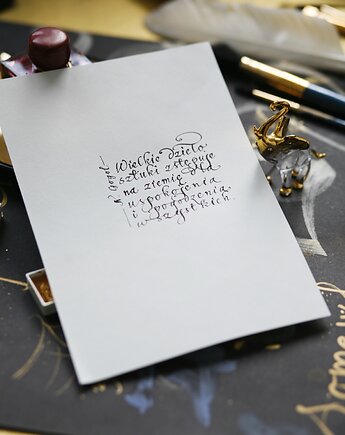 Wielkie dzieło
sztuki zstępuje
na ziemię dla
uspokojenia
i pogodzenia
wszystkich.
Some